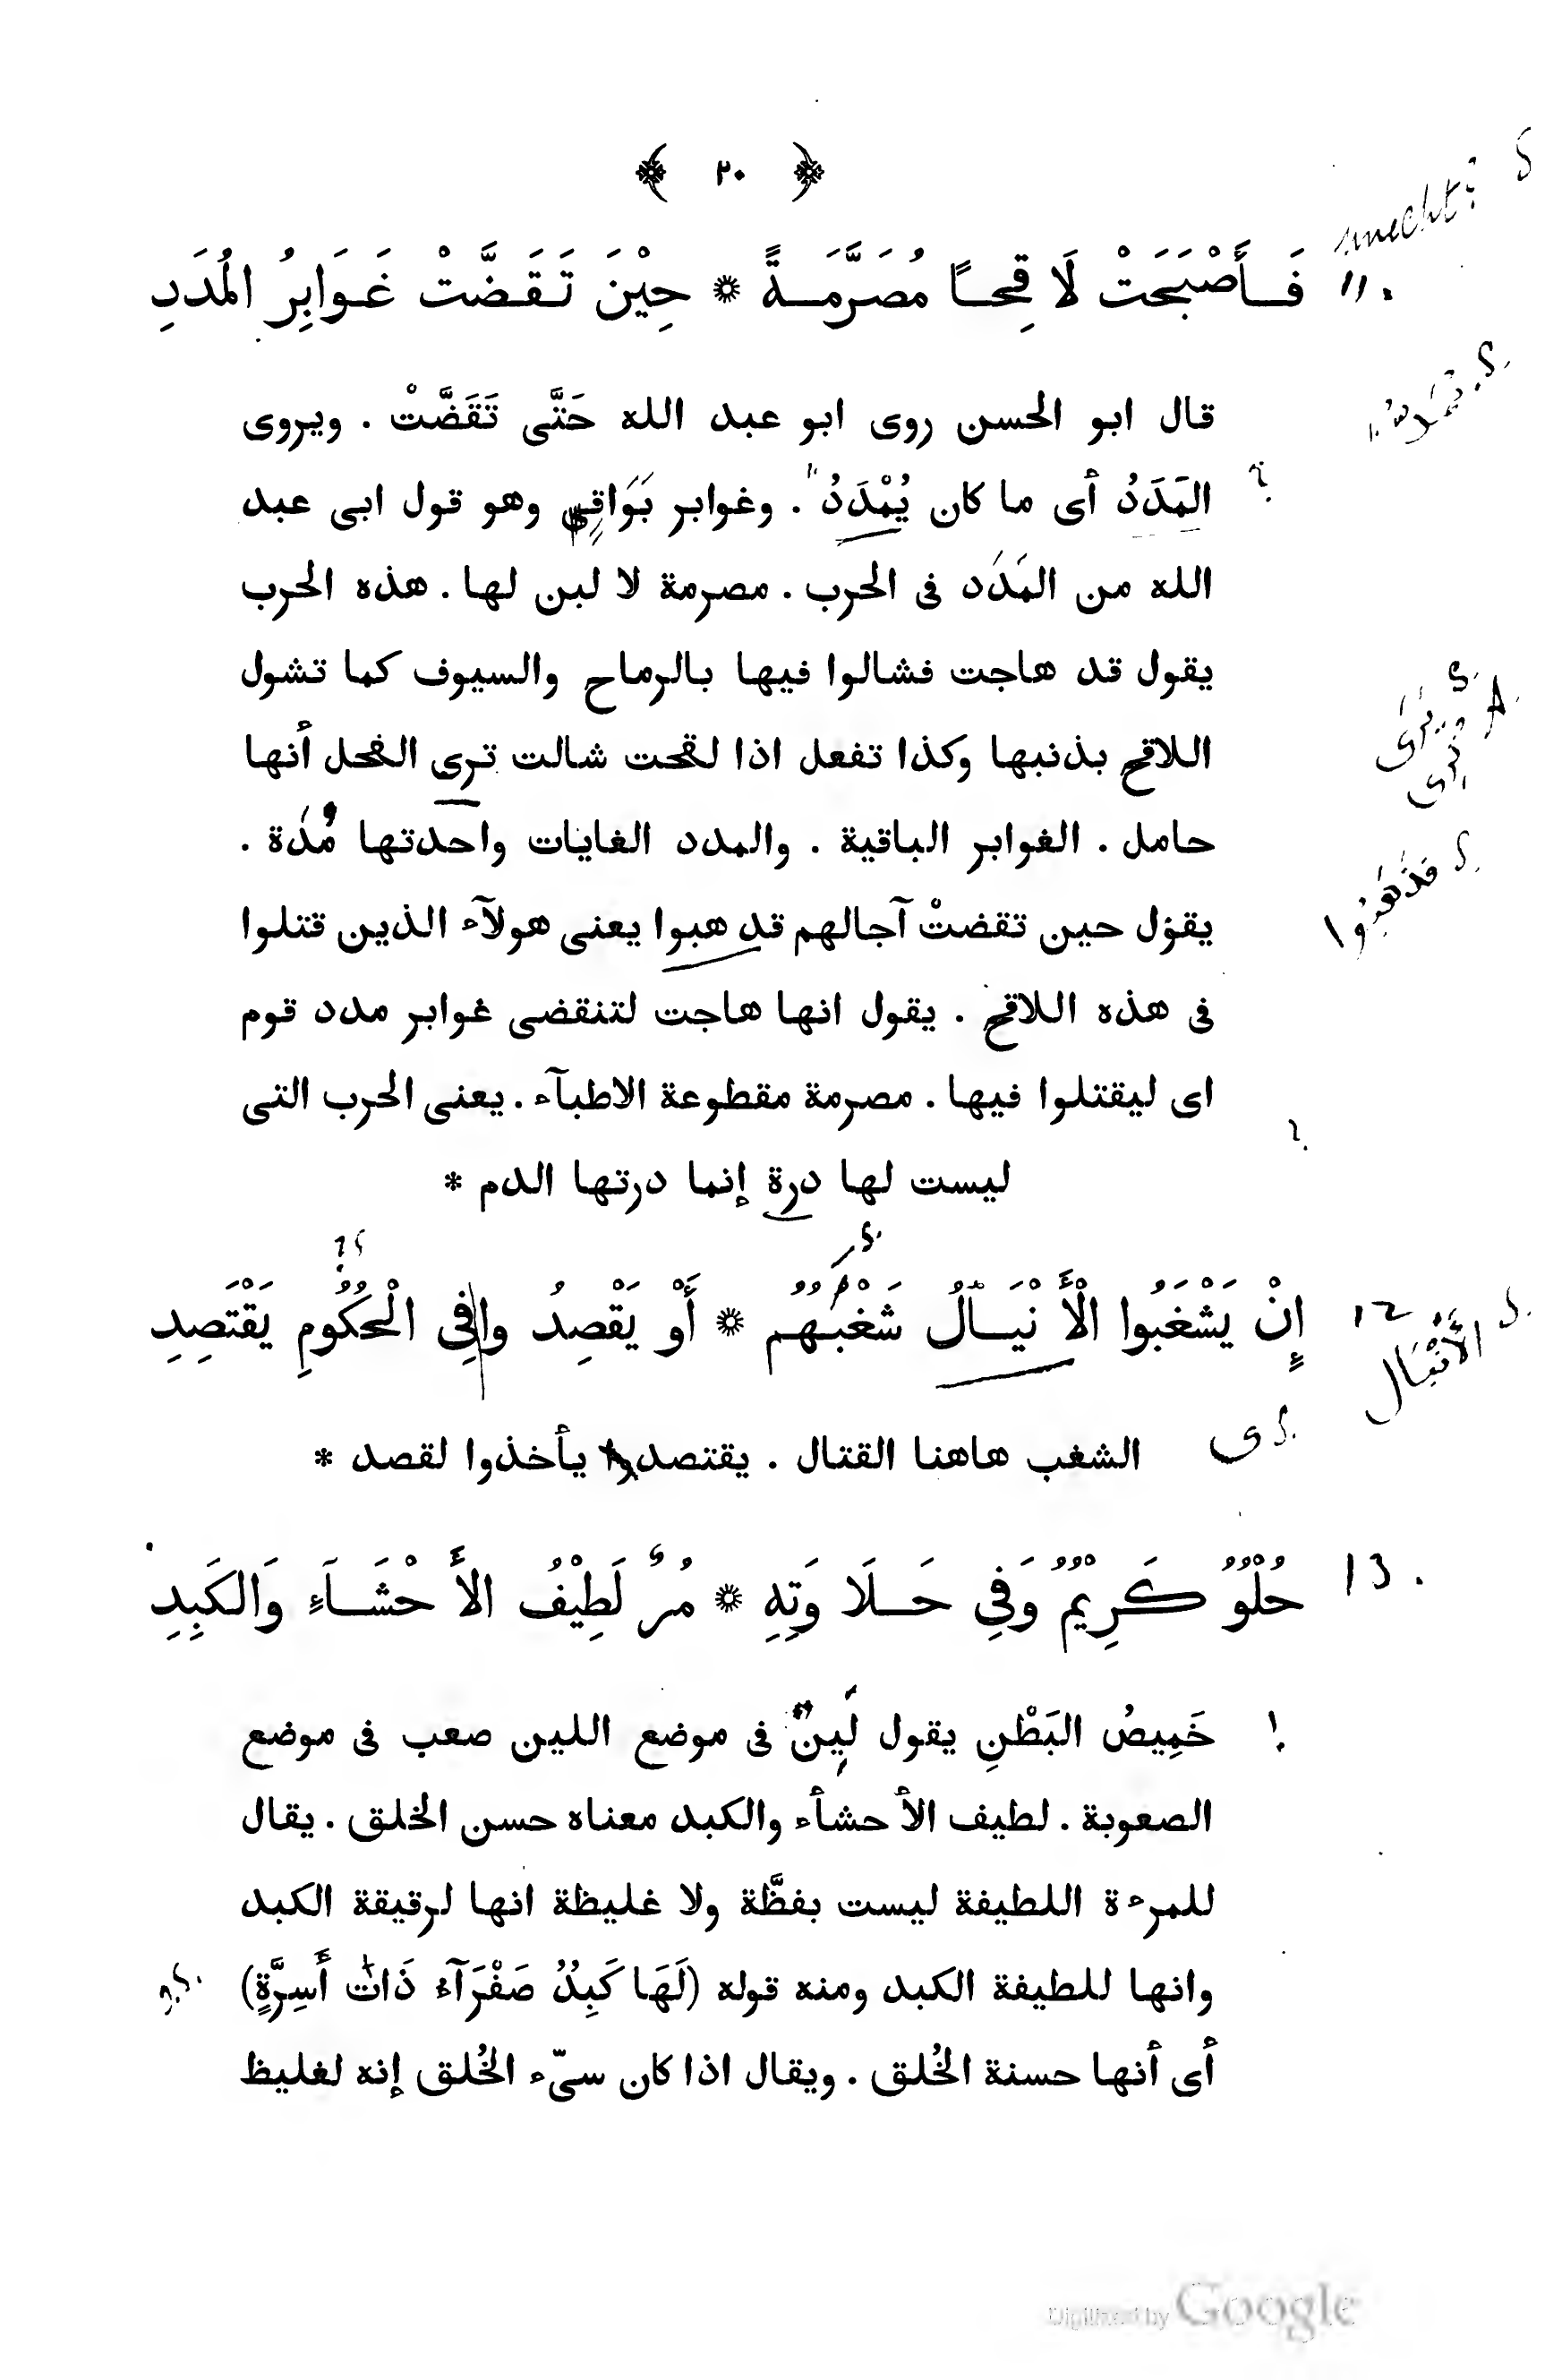 ﴿ ٢٠ ﴾
unecht? S
11. فَأَصْبَحَتْ لَاقِحًا مُصَرَّمَةً * حِيْنَ تَقَضَّتْ غَوَابِرُ المُدَدِ
قال ابو الحسن روى ابو عبد الله حَتَّى تَقَضَّتْ . ويروى
المَدَدُ أى ما كان يُمْدَدُ . وغوابر بَوَاقِى وهو قول ابى عبد
الله من المَدَد فى الحرب . مصرمة لا لبن لها . هذه الحرب
يقول قد هاجت فشالوا فيها بالرماح والسيوف كما تشول
اللاقح بذنبها وكذا تفعل اذا لقحت شالت ترى الفحل أنها
حامل . الغوابر الباقية . والمدد الغايات واحدتها مُدَة .
يقول حين تقضتْ آجالهم قد هبوا يعنى هولآء الذين قتلوا
فَذَهَبُوا S.
فى هذه اللاقح . يقول انها هاجت لتنقضى غوابر مدد قوم
اى ليقتلوا فيها . مصرمة مقطوعة الاطبآء . يعنى الحرب التى
ليست لها درة إنما درتها الدم *
12 إِنْ يَشْغَبُوا الْأَنْيَالُ شَغْبَهُم * أَوْ يَقْصِدُ وافِى الْحُكُومِ يَقْتَصِدِ
الأَنْبَال S.
الشغب هاهنا القتال . يقتصدوا يأخذوا لقصد *
ى S.
13. حُلْوٌ كَرِيْمٌ وَفِى حَلَاوَتِهِ * مُرٌ لَطِيْفُ الأَحْشَآءِ وَالكَبِدِ
خَمِيصُ البَطْنِ يقول لَيِنٌ فى موضع اللين صعب فى موضع
الصعوبة . لطيف الأحشأء والكبد معناه حسن الخلق . يقال
للمرءة اللطيفة ليست بفظَّة ولا غليظة انها لرقيقة الكبد
وانها للطيفة الكبد ومنه قوله (لَهَا كَبِدٌ صَفْرَآءُ ذَاتُ أَسِرَّةٍ)
أى أنها حسنة الخُلق . ويقال اذا كان سىّء الخُلق إنه لغليظ
Digitized by Google